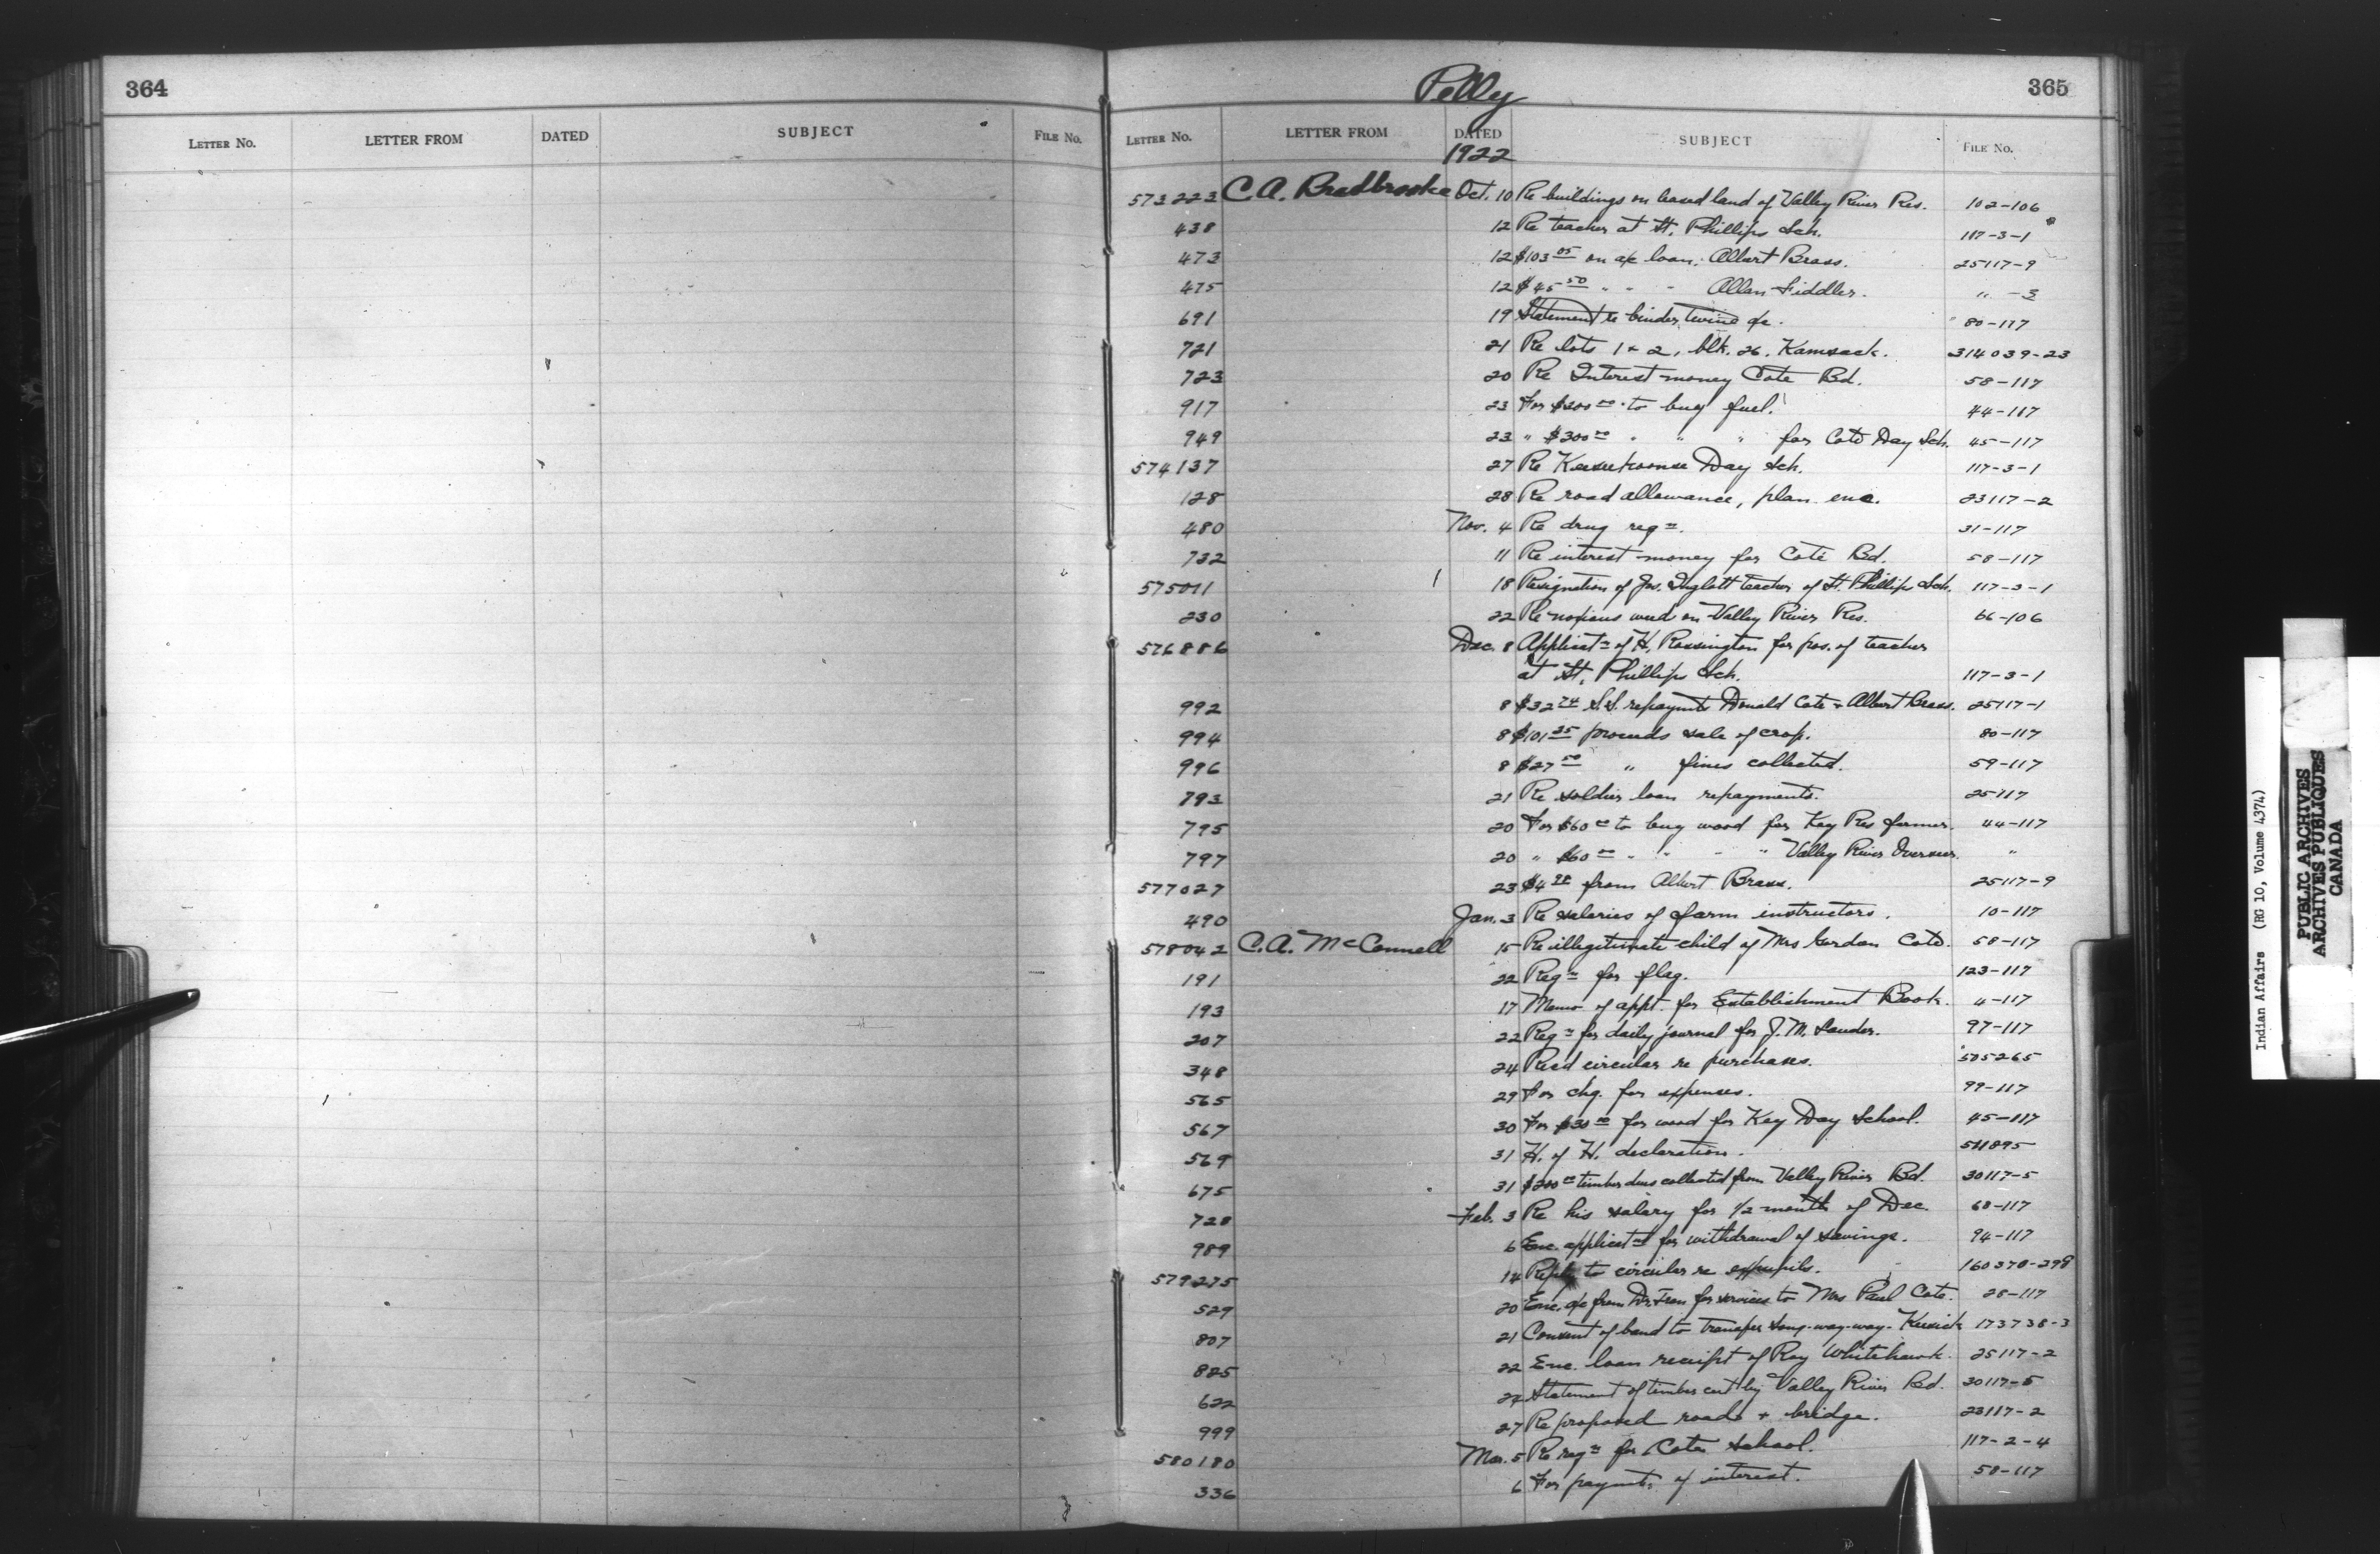 364
LETTER NO. LETTER FROM DATED SUBJECT FILE No.
Pelly
365
LETTER No. LETTER FROM DATED SUBJECT FILE No.
1922
573223 C. A. Bradbrooke Oct. 10 Re buildings on leased land of Valley River Res. 102-106
438 12 Re teacher at St. Phillips Sch. 117-3-1
473 12 $103 05 on a/c loan. Albert Brass. 25117-9
475 12 $45 50 " " - Allan Fiddler. " -3
691 19 Statement re binder twine a/c. 80-117
721 21 Re lots 1 & 2, blk. 26, Kamsack. 314039-23
723 20 Re Interest money Cote Bd. 58-117
917 23 For $200 00 to buy fuel. 44-117
949 23 " $300 00 " " " for Cote Day Sch. 45-117
574137 27 Re Keeseekoonse Day Sch. 117-3-1
128 28 Re road allowance, plan enc. 23117-2
480 Nov. 4 Re drug reqn. 31-117
732 11 Re interest money for Cote Bd. 58-117
575011 18 Resignation of Jos. Inglott teacher of St. Phillips Sch. 117-3-1
230 22 Re noxious weeds on Valley River Res. 66-106
576886 Dec. 8 Applicatn of H. Rossington for pos. of teacher
at St. Phillips Sch. 117-3-1
992 8 $32 74 S.S. repaymts Donald Cote & Albert Brass. 25117-1
994 8 $101 25 proceeds sale of crop. 80-117
996 8 $27 50 " fines collected. 59-117
793 21 Re soldier loan repayments. 25117
795 20 For $60 00 to buy wood for Key Res farmer. 44-117
797 20 " $60 00 " " - " Valley River Overseer. "
577027 23 $4 from Albert Brass. 25117-9
490 Jan. 3 Re salaries of farm instructors. 10-117
578042 C. A. McConnell 15 Re illegitimate child of Mrs Gordon Cote. 58-117
191 22 Reqn for flag. 123-117
193 17 Memo of appt. for Establishment Book. 4-117
207 22 Reqn for daily journal for J. M. Sauder. 97-117
348 24 Recd circular re purchases. 505265
565 29 For chq. for expenses. 99-117
567 30 For $30 00 for wood for Key Day School. 45-117
569 31 H. of H. declaration. 511895
675 31 $200 00 timber dues collected from Valley River Bd. 30117-5
728 Feb. 3 Re his salary for 1/2 month of Dec. 68-117
989 6 Enc. applicatn for withdrawal of savings. 94-117
579275 14 Reply to circular re expupils. 160370-298
529 20 Enc. a/c from Dr. for services to Mrs Paul Cote. 28-117
807 21 Consent of band to transfer Song-way-way-Keesick 173738-3
825 22 Enc. loan receipt of Roy Whitehawk. 25117-2
622 24 Statement of timber cut by Valley River Bd. 30117-5
999 27 Re proposed road & bridge. 23117-2
580180 Mar. 5 Re reqn for Cote School. 117-2-4
336 6 For paymts. of interest. 58-117
Indian Affairs (RG 10, Volume 4374)
PUBLIC ARCHIVES
ARCHIVES PUBLIQUES
CANADA